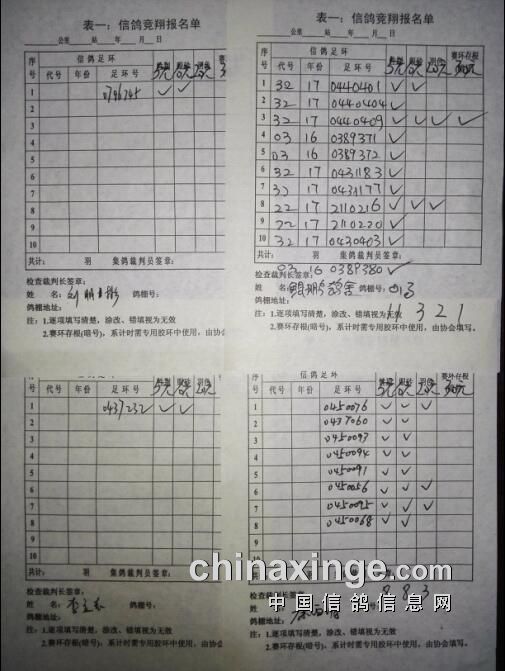 表一：信鸽竞翔报名单
公里 站 年 月 日
序号 信鸽足环
代号 年份 足环号
1 0796745 ✓ ✓
2
3
4
5
6
7
8
9
10
共计： 羽 集鸽裁判员签章：
检查裁判长签章：
姓 名： 鸽棚号：
鸽棚地址：
注：1.逐项填写清楚，涂改、错填视为无效
2.赛环存根(暗号)，系计时需专用胶环中使用，由协会
表一：信鸽竞翔报名单
公里 站 年 月 日
序号 信鸽足环 赛环存根
代号 年份 足环号
1 32 17 0440401 ✓ ✓
2 32 17 0440404 ✓
3 32 17 0440409 ✓ ✓ ✓ ✓
4 03 16 0389371 ✓
5 03 16 0389372 ✓
6 32 17 0431183 ✓
7 32 17 0433177 ✓
8 22 17 2110216 ✓ ✓ ✓
9 22 17 2110220 ✓
10 32 17 0430403 ✓
共计： 羽 集鸽裁判员签章：
03 16 0389380 ✓
检查裁判长签章：
姓 名： 鸽舍 鸽棚号：
鸽棚地址：
11 3 2 1
注：1.逐项填写清楚，涂改、错填视为无效
2.赛环存根(暗号)，系计时需专用胶环中使用，由协会填写。
序号 信鸽足环
代号 年份 足环号
1 0437232 ✓ ✓
2
3
4
5
6
7
8
9
10
共计： 羽 集鸽裁判员签章：
检查裁判长签章：
姓 名： 鸽棚号：
鸽棚地址：
注：1.逐项填写清楚，涂改、错填视为无效
2.赛环存根(暗号)，系计时需专用胶环中使用，由协会
序号 信鸽足环 赛环存根
代号 年份 足环号
1 0450076 ✓ ✓ ✓
2 0437060 ✓ ✓
3 0450093 ✓ ✓
4 0450094 ✓ ✓
5 0450091 ✓ ✓
6 0450056 ✓ ✓ ✓
7 0450095 ✓ ✓ ✓
8 0450068 ✓ ✓
9
10
共计： 羽 集鸽裁判员签章：
检查裁判长签章：
8 8 3
姓 名： 鸽棚号：
鸽棚地址：
注：1.逐项填写清楚，涂改、错填视为无效
2.赛环存根(暗号)，系计时需专用胶环中使用，由协会填写。
chinaxinge.com
中国信鸽信息网